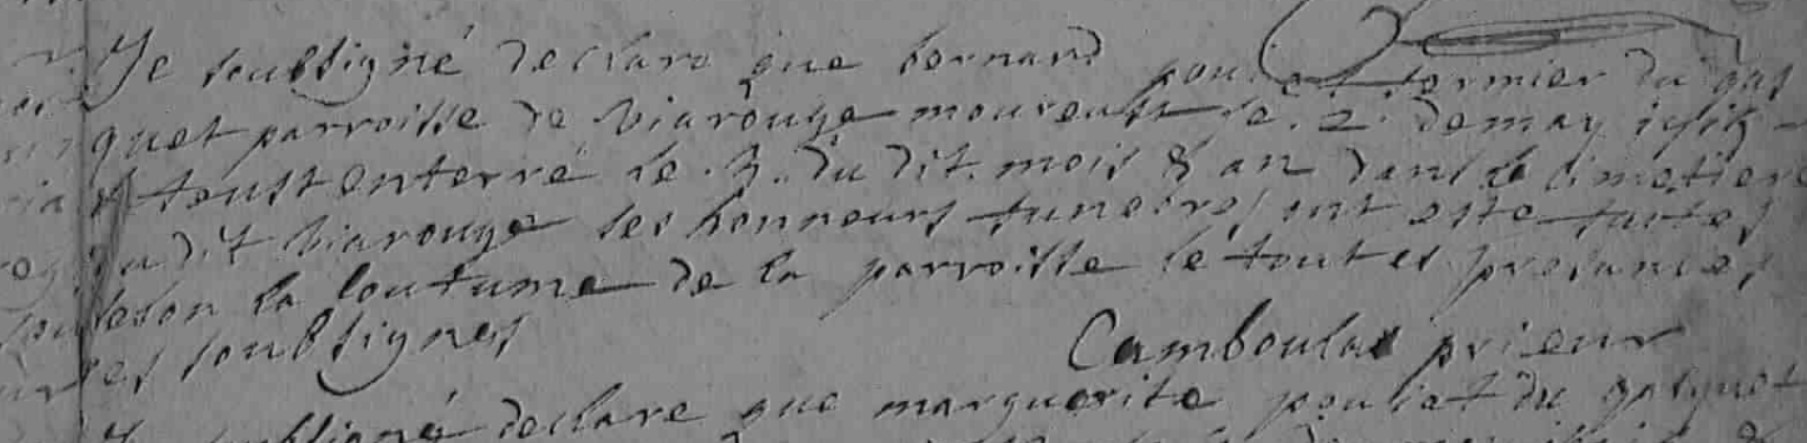 Je soubsigné declare que bernard fermier du gas
quet parroisse de viarouge moureust le .2. de may
et feust enterré le .3. du dit mois & an dans le cimetiere
du dit viarouge les honneurs funebres ont esté faites
selon la coutume de la parroisse le tout es presances
des soubsignes
Camboulas prieur
Je soubsigné declare que marguerite pouliet du gasquet